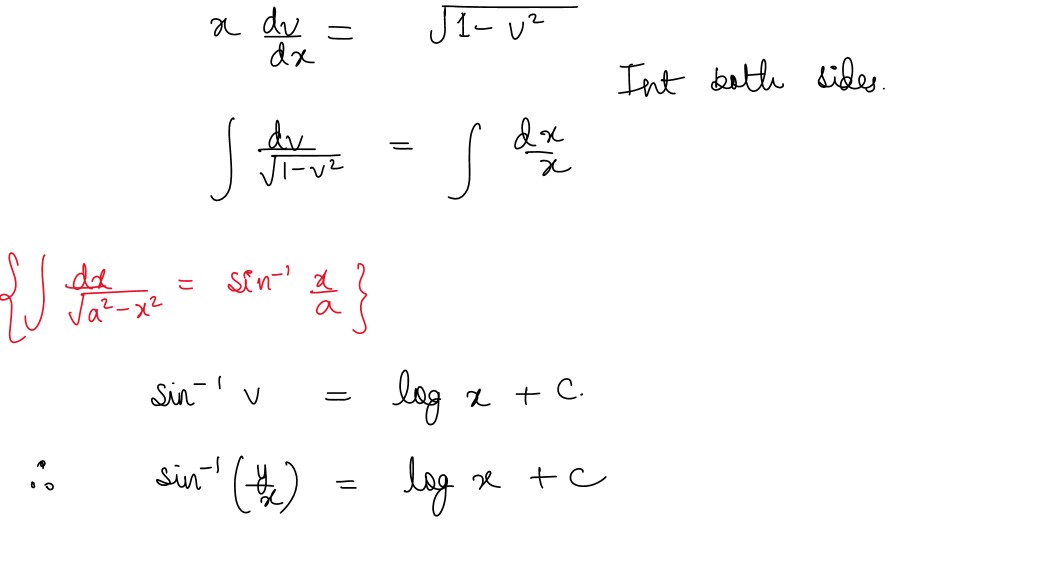 x dv/dx = √(1 - v²)
Int both sides.
∫ dv/√(1-v²) = ∫ dx/x
{∫ dx/√(a²-x²) = sin⁻¹ x/a}
sin⁻¹ v = log x + C.
∴ sin⁻¹(y/x) = log x + C